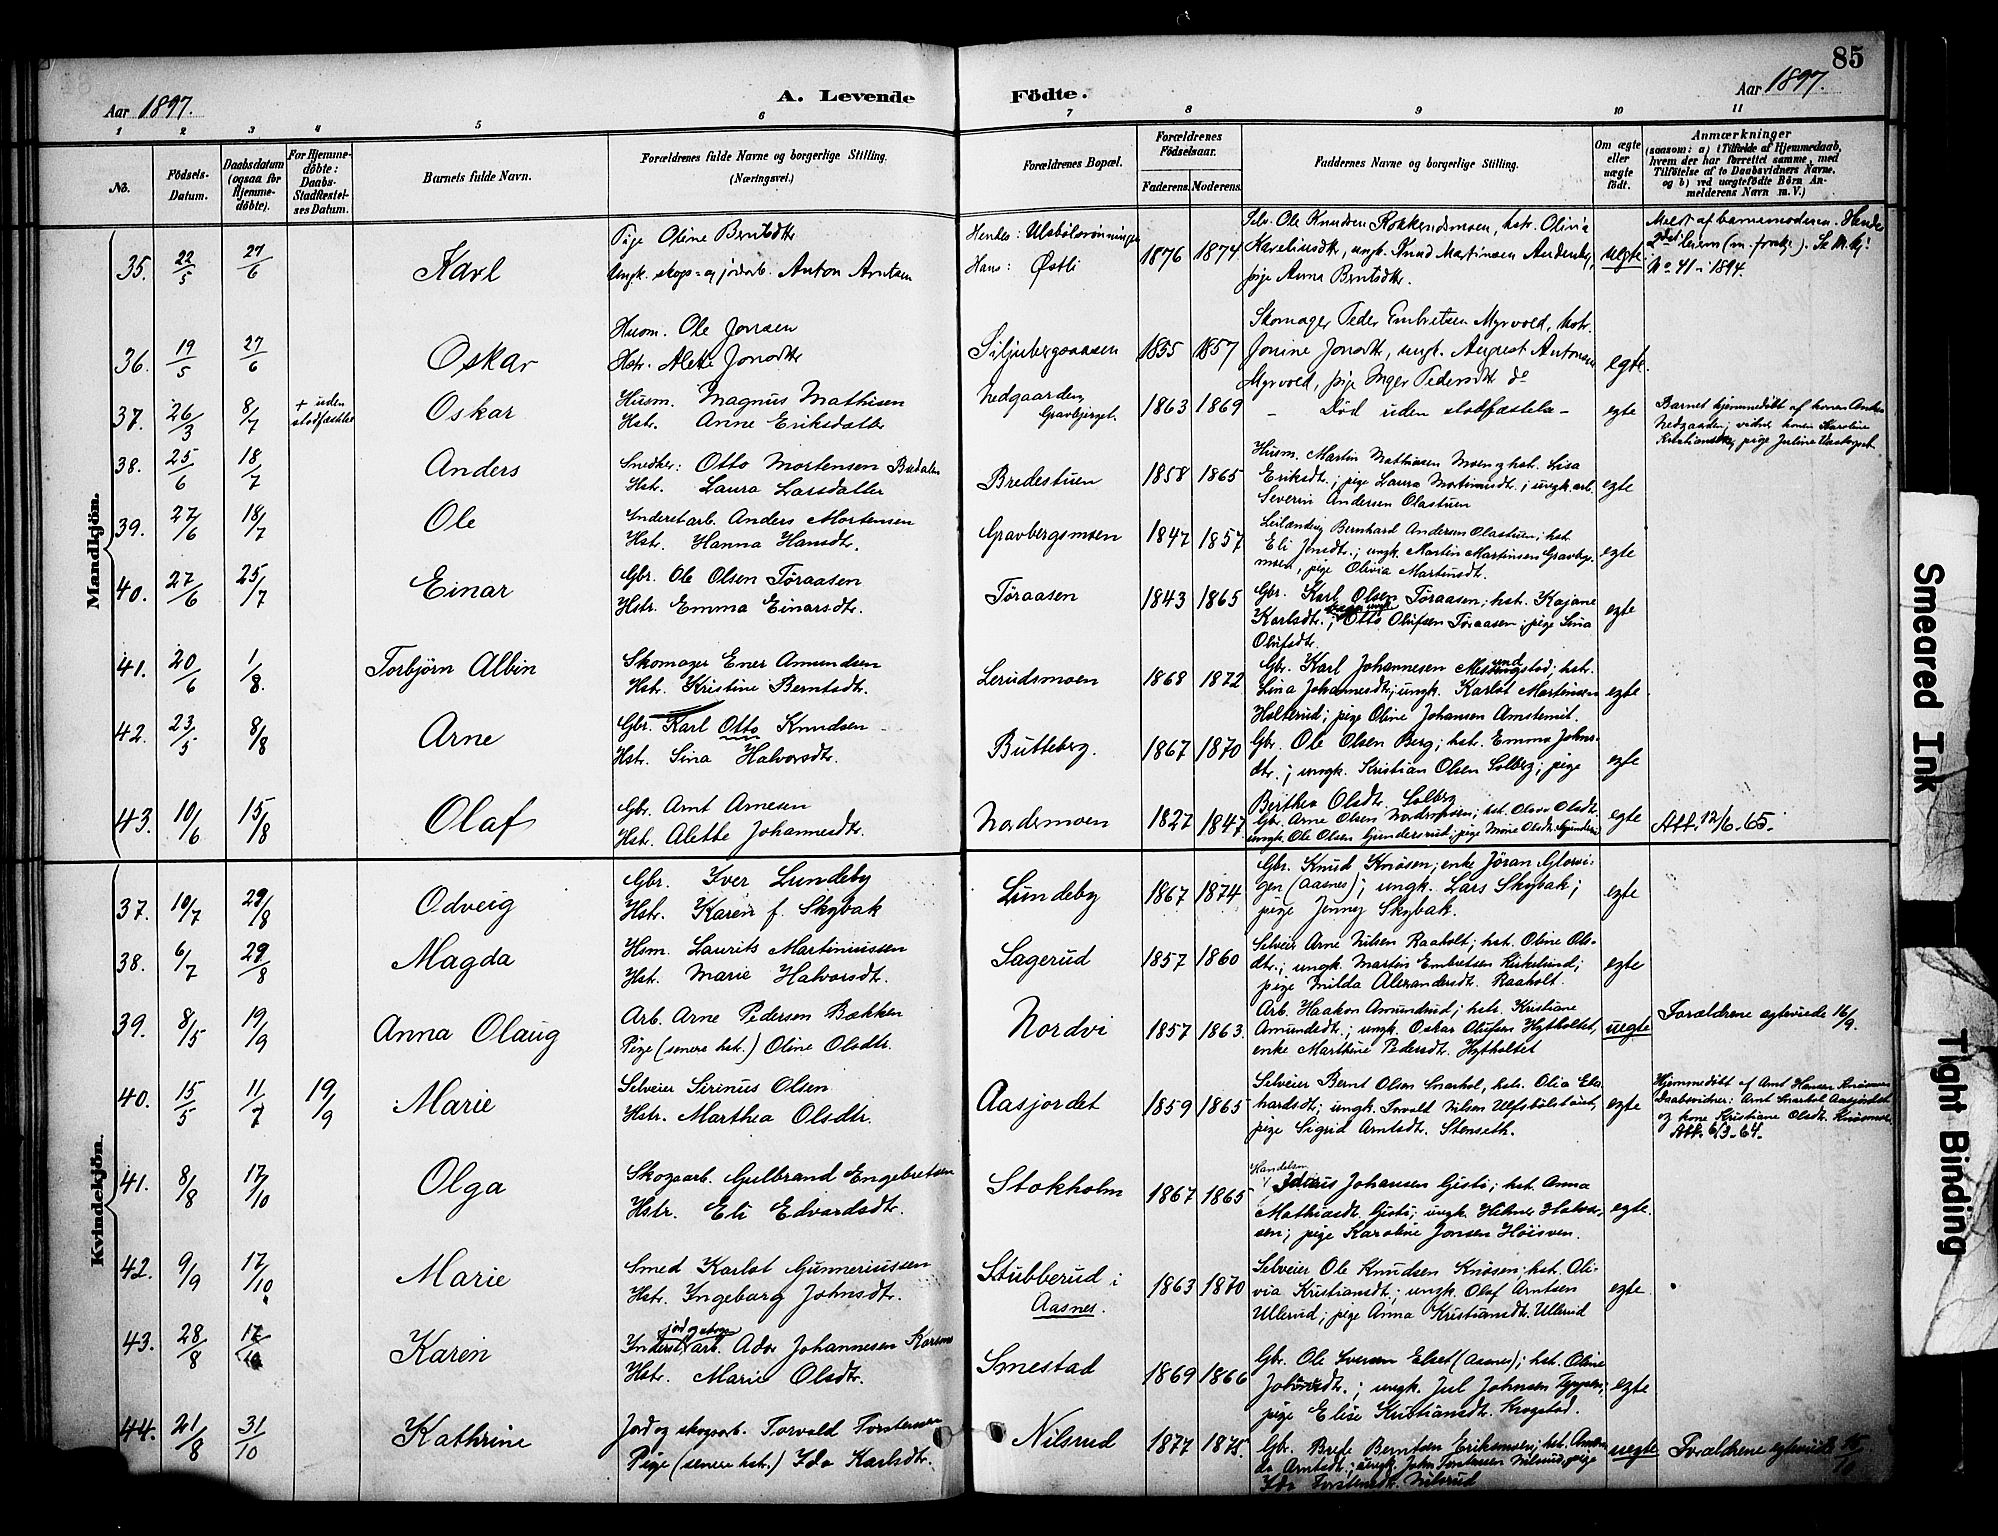 85
Aar 1897.
A. Levende Födte.
Aar 1897.
1 2 3 4 5 6 7 8 9 10 11
No.
Födsels-Datum.
Daabsdatum (ogsaa for Hjemme-döbte).
For Hjemme-döbte: Daabs-Stadfæstel-ses Datum.
Barnets fulde Navn.
Forældrenes fulde Navne og borgerlige Stilling. (Næringsvei.)
Forældrenes Bopæl.
Forældrenes Födselsaar.
Faderens. Moderens.
Faddernes Navne og borgerlige Stilling.
Om ægte eller uægte födt.
Anmærkninger
(saasom: a) i Tilfælde af Hjemmedaab, hvem der har forrettet samme, med Tilföielse af to Daabsvidners Navne, og b) ved uægtefödte Börn An-melderens Navn m. V.)
Mandkjön.
35. 22/5 27/6 Karl
Pige Oline Berntsdtr
Ungk. skogs- og jordarb. Anton Arntsen
Hendes: Ulsbölsrönningen
Hans: Östli
1876 1874
Selv. Ole Knudsen Rokkendsmoen, hstr. Olivia
Karelinsdtr, ungk. Knud Martinsen
pige Anna Berntsdtr.
uegte
Meldt af barnemoderen. Hendes
No 41 i 1894.
36. 19/5 27/6 Oskar
Husm. Ole Jonsen
Hstr. Alette Jonsdtr
Siljubergsaasen 1855 1857
Skomager Peder Embretsen Myrvold, hstr.
Jonine Jonsdtr, ungk. August Antonsen
Myrvold, pige Inger Pedersdtr do
egte.
37. 26/3 8/7 + uden stadfæstelse Oskar
Husm. Magnus Mathisen
Hstr. Anne Eriksdatter
Nedgaarden, Gravbjerget. 1863 1869
- Död uden stadfæstelse - egte
Barnet hjemmedöbt af konen
Nedgaarden; vidner konen Karoline
Kristiansdtr, pige Juline
38. 25/6 18/7 Anders
Snedker: Otto Mortensen Bredesten
Hstr. Laura Larsdatter
Bredestuen 1858 1865
Husm. Martin Mathiasen Moen og hst. Lisa
Eriksdtr.; pige Laura Martinusdtr.; ungk. arb.
Severin Andersen Olastuen
egte
39. 27/6 18/7 Ole
Inderst arb. Anders Mortensen
Hst. Hanna Hansdtr.
Gravbergsmoen 1847 1857
Leilændig Bernhard Andersen Olastuen; hst.
Eli Jensdtr.; ungk. Martin Martinsen Gravbergs-
moen, pige Olivia Martinsdtr.
egte
40. 27/6 25/7 Einar
Gbr. Ole Olsen Töraasen
Hstr. Emma Einarsdtr.
Töraasen 1843 1865
Gbr. Karl Olsen Töraasen; hst. Kajane
Karlsdtr.; Otto Olufsen Töraasen; pige Sina
Olufsdtr.
egte
41. 20/6 1/8. Torbjörn Albin
Skomager Ener Amundsen
Hst. Kristine Berntsdtr.
Lerudsmoen 1868 1872
Gbr. Karl Johannesen Melsungstad; hstr.
Lina Johannesdtr; ungk. Karlot Martinsen
Holterud; pige Oline Johansen Amstemit.
egte
42. 23/5 8/8 Arne
Gbr. Karl Otto Knudsen
Hst. Sina Halvorsdtr.
Butteberg. 1867 1870
Gbr. Ole Olsen Berg; hst. Emma Johns-
dtr.; ungk. Kristian Olsen Solberg; pige
Berthea Olsdtr. Solberg
egte
43. 10/6 15/8 Olaf
Gbr. Arnt Arnesen
Hst. Alette Johannesdtr.
Nordermoen 1827 1847
Gbr. Arne Olsen; hst. Olava Olsdtr.
ungk. Ole Olsen Gundersrud; pige Mine Olsdtr.
egte Att. 12/6-65.
Kvindekjön.
37. 10/7 29/8 Odveig
Gbr. Iver Lundeby
Hst. Karen f. Skybak
Lundeby 1867 1874
Gbr. Knud Knösen; enke Jöran Glorvi-
gen (Aasnes); ungk. Lars Skybak;
pige Jenny Skybak.
egte
38. 6/7 29/8 Magda
Hsm. Laurits Martiniussen
Hst. Marie Halvorsdtr.
Sagerud 1857 1860
Selveier Arne Nilsen Raaholt; hst. Oline Ols-
dtr.; ungk. Martin Embretsen Kirkelund;
pige Milda Alexandersdtr. Raaholt.
egte
39. 8/5 19/9 Anna Olaug
Arb. Arne Pedersen Bækken
Pige (senere hst.) Oline Olsdtr.
Nordvi 1857 1863.
Arb. Haakon Amundrud; hst. Kristiane
Amundsdtr.; ungk. Oskar Olufsen Hytholtet,
enke Marthine Pedersdtr. Hytholtet
uegte Forældrene egteviede 16/9.
40. 15/5 11/7 19/9 Marie
Selveier Sirinus Olsen
Hstr. Marthea Olsdtr.
Aasjordet 1859 1865
Selveier Bernt Olsen Snarhol, hst. Olia Eber-
hardsdt; ungk. Torvald Nilsen Ulfsbölstuen,
pige Sigrid Arntsdtr. Stenseth.
egte
Hjemmedöbt af Arnt Hansen Knösmoen
Daabsvidner: Arnt Snarhol Aasjordet
og kone Kristiane Olsdt. Knösmoen.
Att. 6/3-64.
41. 8/8 17/10 Olga
Skogsarb. Gulbrand Engebretsen
Hstr. Eli Edvardsdtr.
Stokholm 1867 1865
Handelsm. Julius Johansen Gjesti; hst. Anna
Mathiasdt. Gjesti; ungk. Helmer Halvor-
sen; pige Karoline Jonsen Höisven.
egte.
42. 9/9 17/10 Marie
Smed Karlot Gunneriussen
Hst. Ingeborg Johnsdtr.
Stubberud i Aasnes. 1863 1870
Selveier Ole Knudsen Knösen; hst. Oli-
via Kristiansdt.; ungk. Olaf Arntsen
Ullerud; pige Anna Kristiansdt. Ullerud
egte
43. 28/8 17/10 Karen
Inderst jord og skogs arb. Ador Johannesen
Hst. Marie Olsdtr.
Smestad 1869 1866
Gbr. Ole Iversen Elset (Aasnes); hst. Oline
Johnsdtr.; ungk. Jul Johnsen Teppen;
pige Elise Kristiansdt. Krogstad.
egte
44. 21/8 31/10 Kathrine
Jord og skogsarb. Torvald Torstensen
Pige (senere hst.) Ida Karlsdtr.
Nilsrud 1877 1875.
Gbr. Brede Berntsen Eriksmoen; hst. Aman-
da Arntsdt.; ungk. John Torstensen Nilsrud, pige
Ida Torstensdt. Nilsrud
uegte Forældrene egteviede 15/10
Smeared Ink
Tight Binding